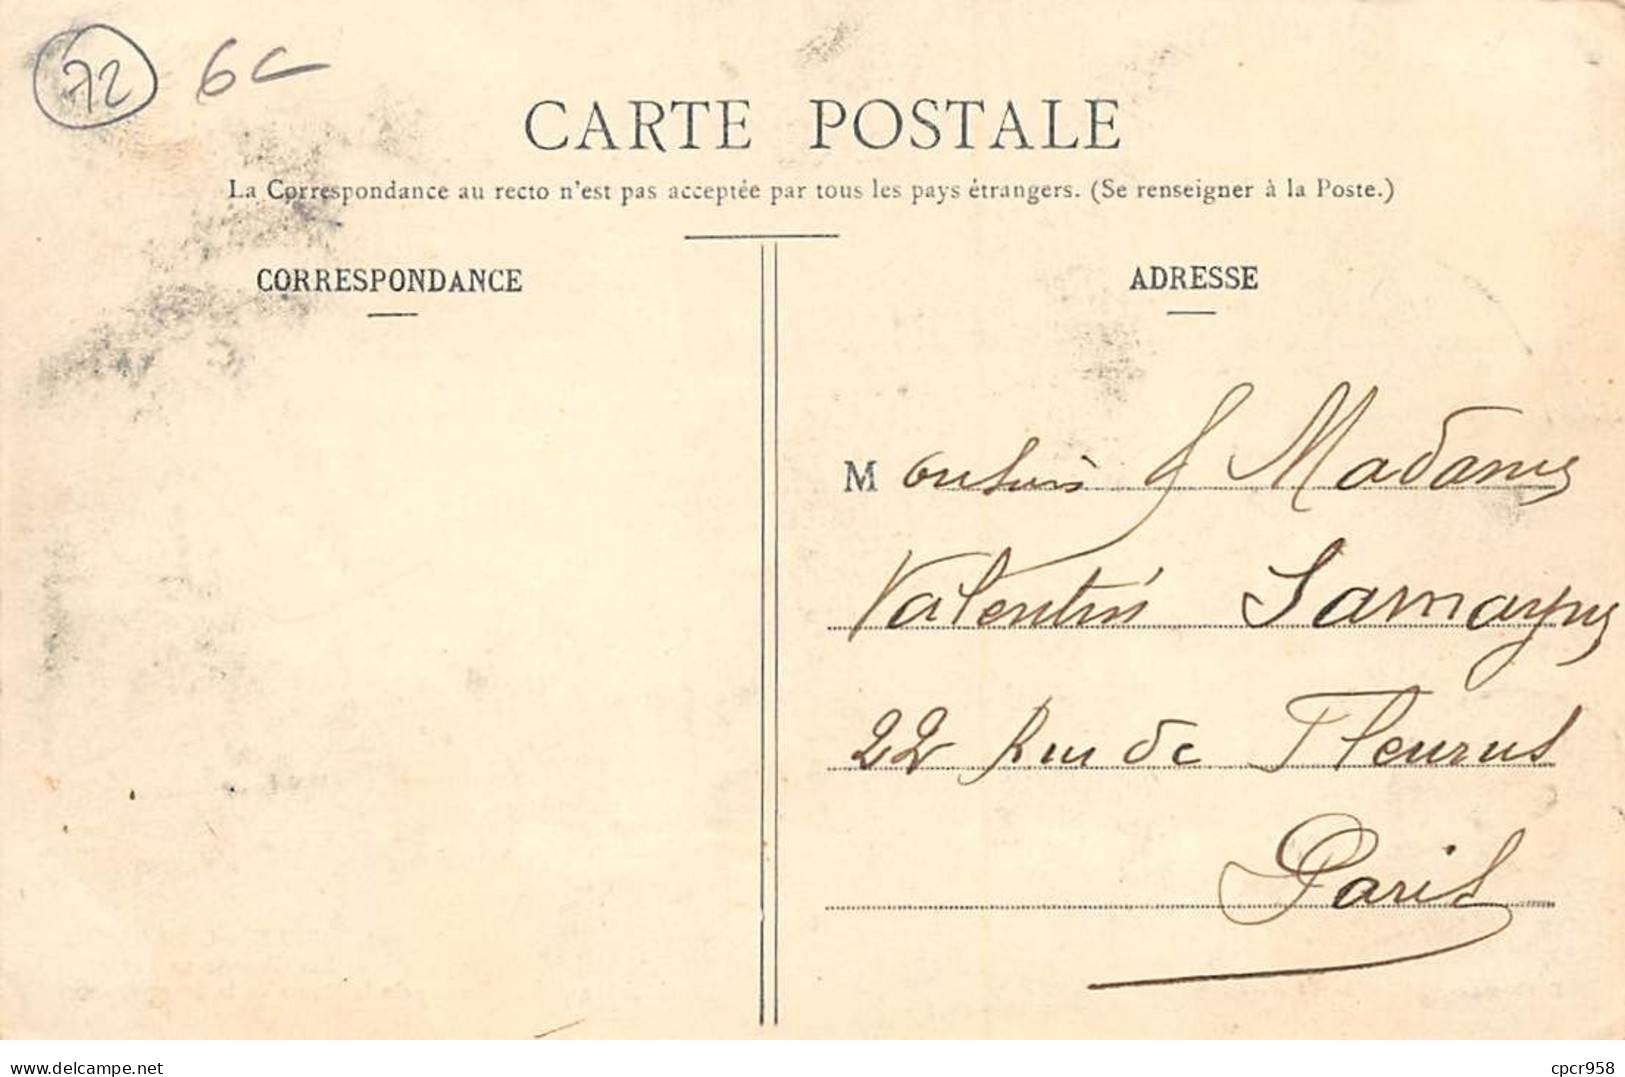 72 6C
CARTE POSTALE
La Correspondance au recto n'est pas acceptée par tous les pays étrangers. (Se renseigner à la Poste.)
CORRESPONDANCE
ADRESSE
Monsieur & Madame
Valentin
22 Rue de Fleurus
Paris
delcampe.net
cpcr958